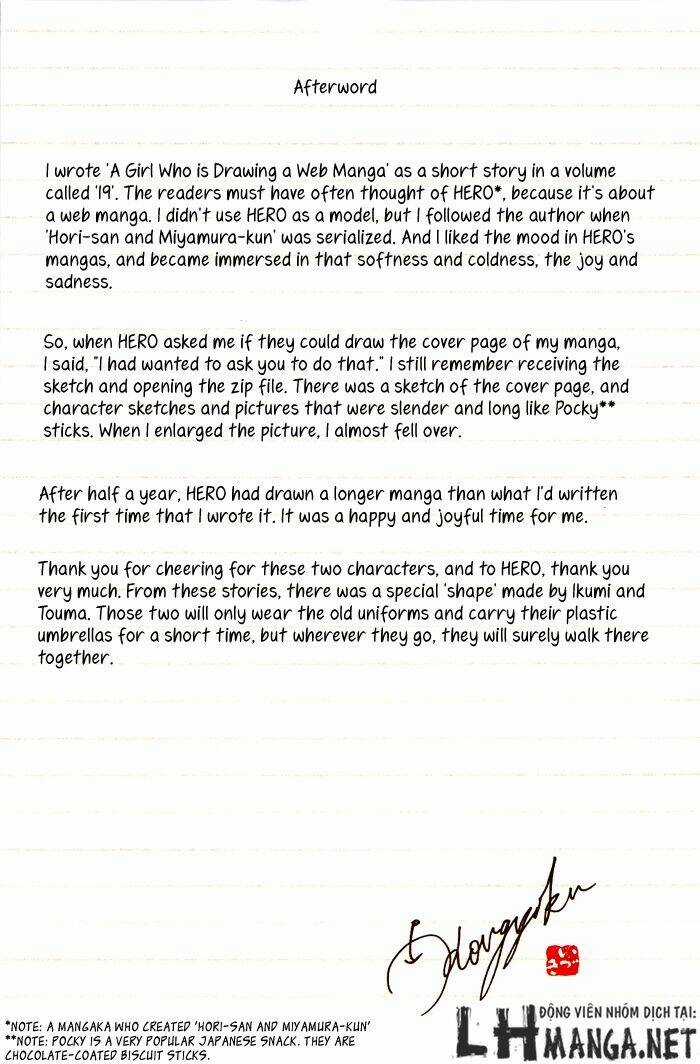 Afterword
I wrote 'A Girl Who is Drawing a Web Manga' as a short story in a volume
called '19'. The readers must have often thought of HERO*, because it's about
a web manga. I didn't use HERO as a model, but I followed the author when
'Hori-san and Miyamura-kun' was serialized. And I liked the mood in HERO's
mangas, and became immersed in that softness and coldness, the joy and
sadness.
So, when HERO asked me if they could draw the cover page of my manga,
I said, "I had wanted to ask you to do that." I still remember receiving the
sketch and opening the zip file. There was a sketch of the cover page, and
character sketches and pictures that were slender and long like Pocky**
sticks. When I enlarged the picture, I almost fell over.
After half a year, HERO had drawn a longer manga than what I'd written
the first time that I wrote it. It was a happy and joyful time for me.
Thank you for cheering for these two characters, and to HERO, thank you
very much. From these stories, there was a special 'shape' made by Ikumi and
Touma. Those two will only wear the old uniforms and carry their plastic
umbrellas for a short time, but wherever they go, they will surely walk there
together.
*NOTE: A MANGAKA WHO CREATED 'HORI-SAN AND MIYAMURA-KUN'
**NOTE: POCKY IS A VERY POPULAR JAPANESE SNACK. THEY ARE
CHOCOLATE-COATED BISCUIT STICKS.
ĐỘNG VIÊN NHÓM DỊCH TẠI:
LHMANGA.NET